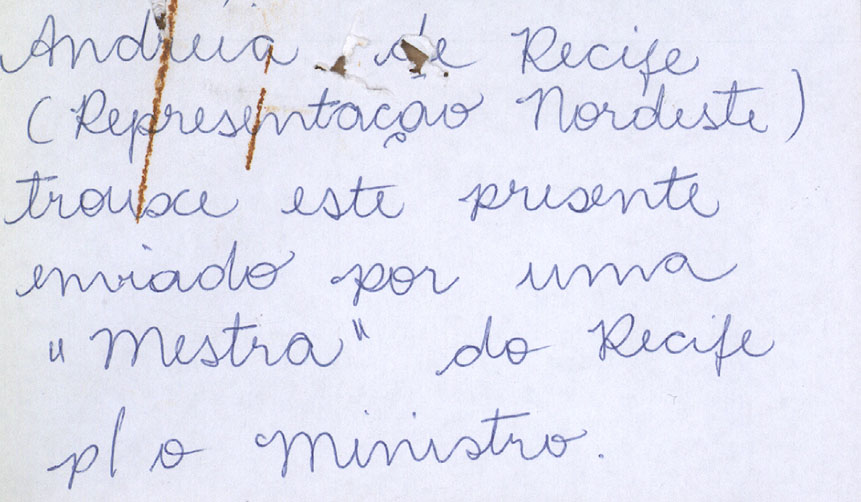 Andréia de Recife
(Representação Nordeste)
trouxe este presente
enviado por uma
"Mestra" do Recife
p/ o Ministro.